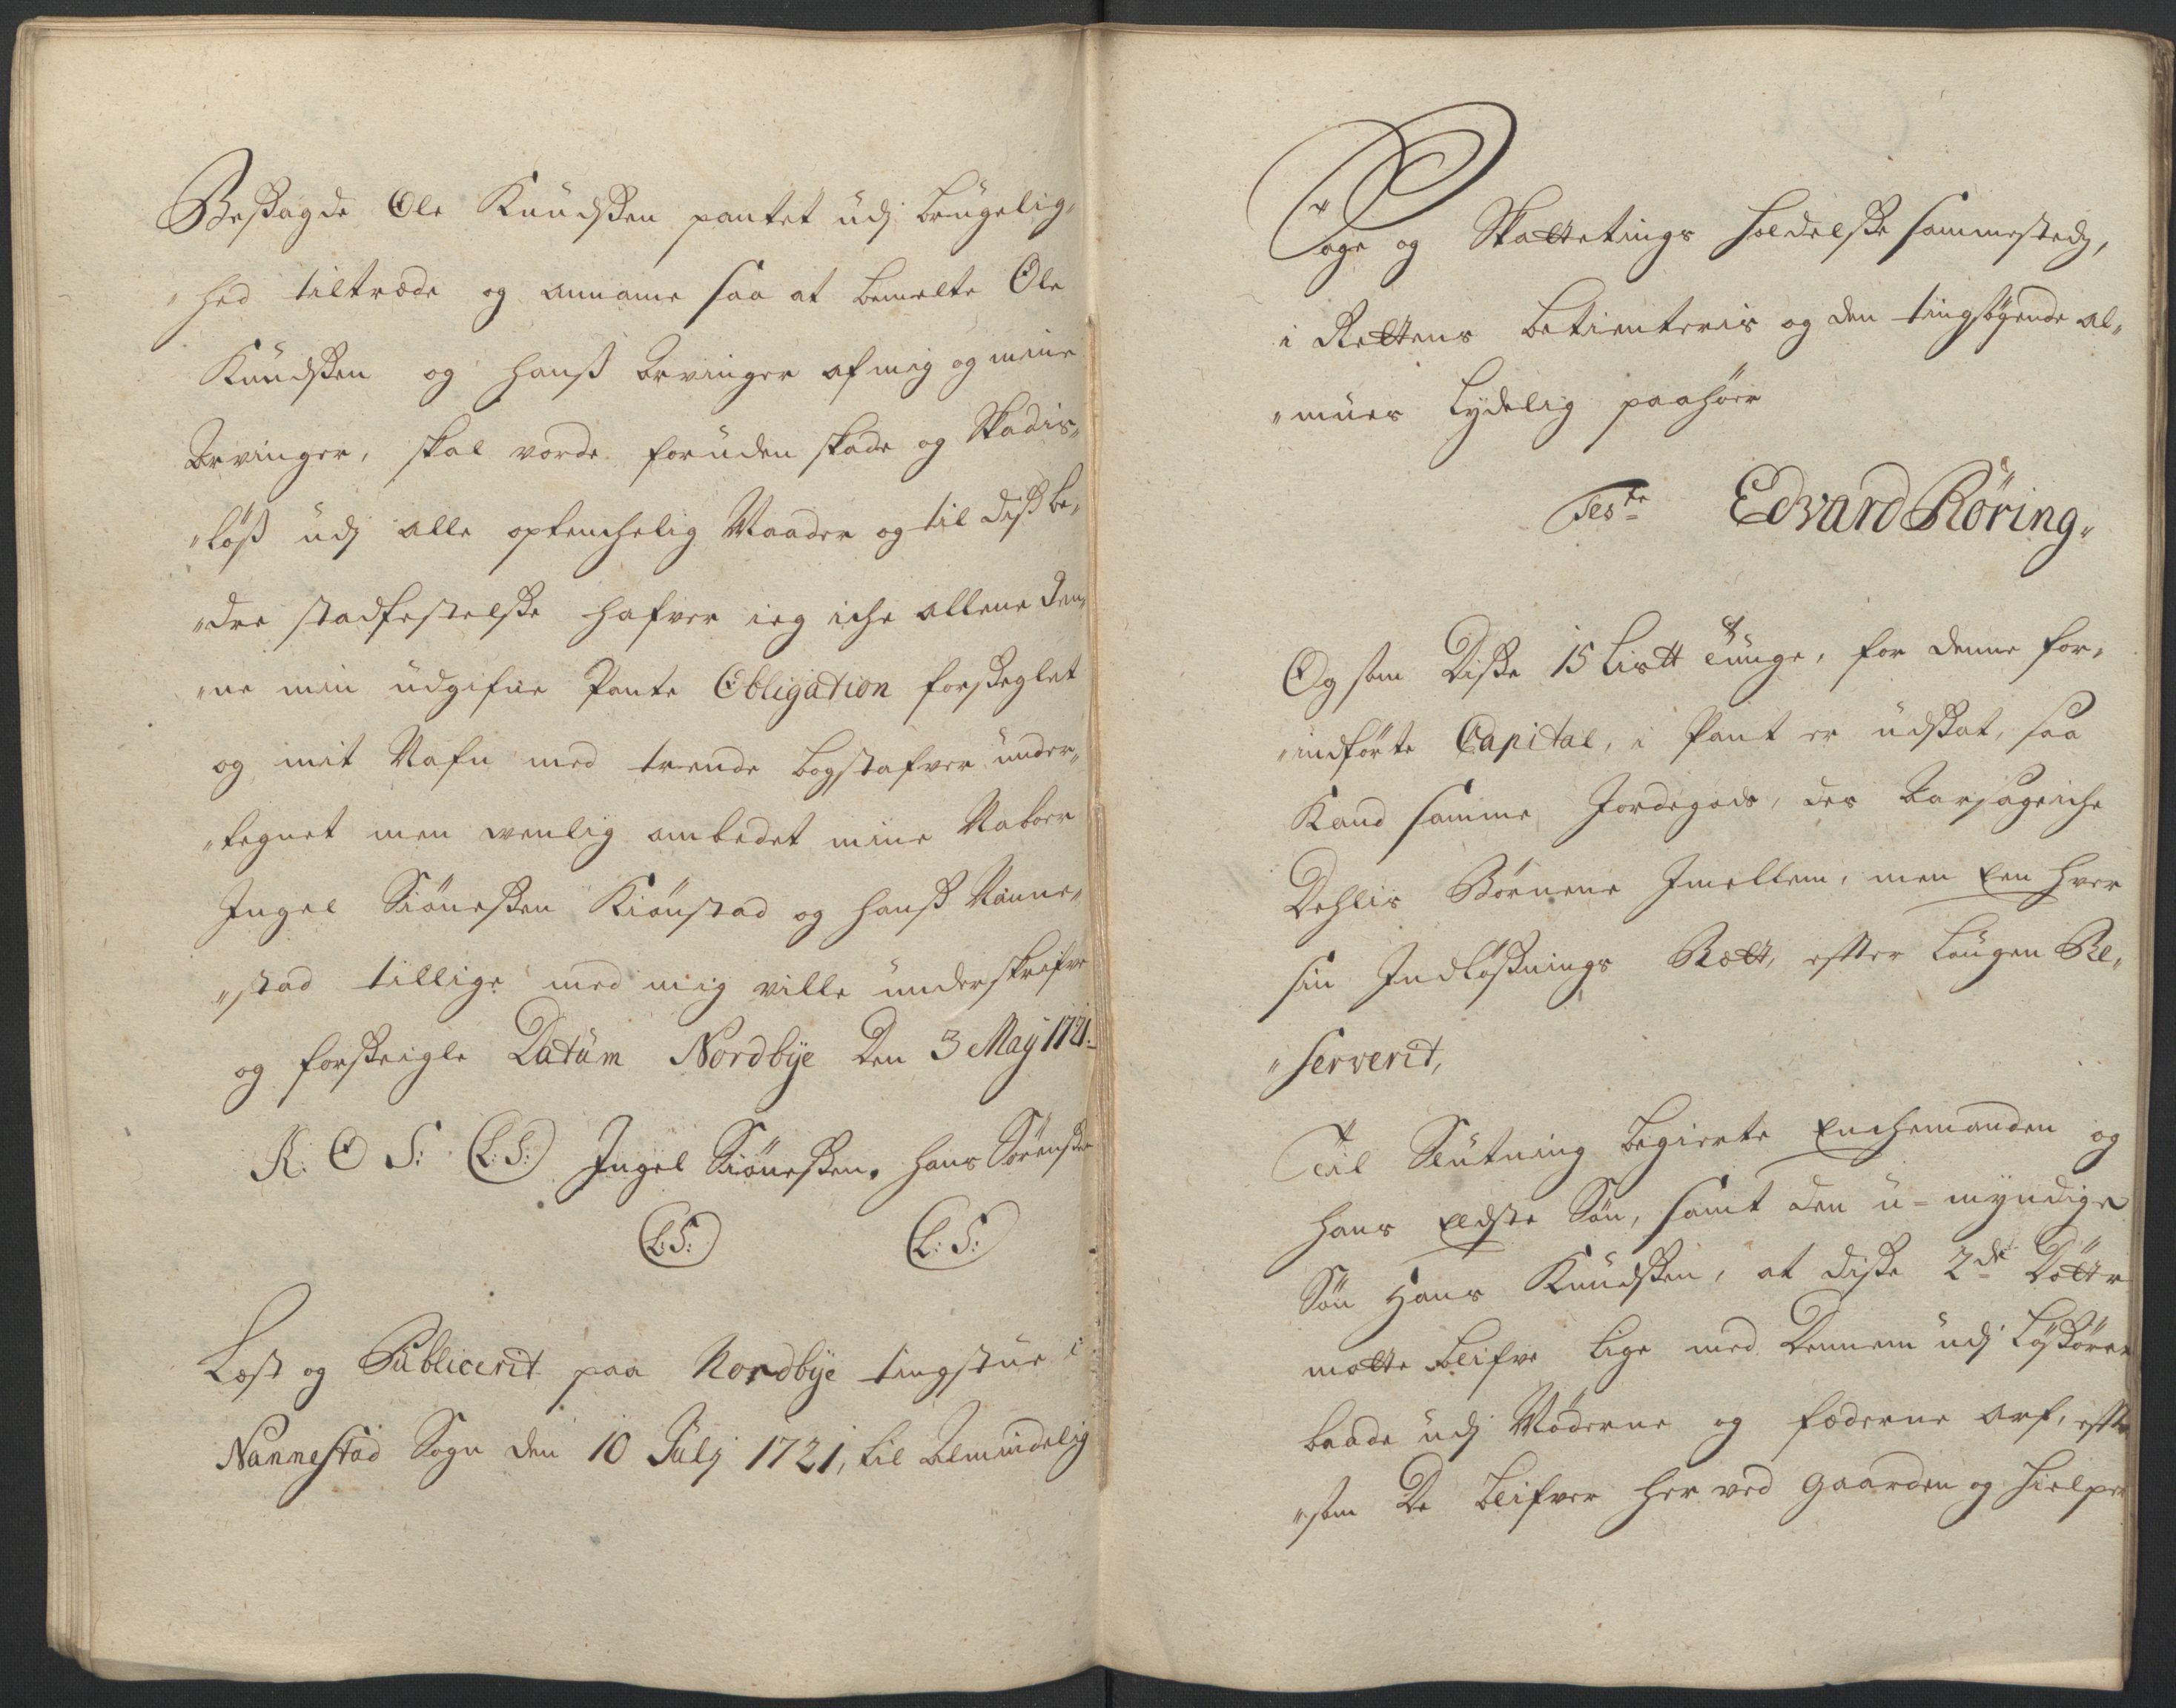 Besagde Ole Knudsen pantet udj brugelig„
„hed tiltræde og anname saa at bemelte Ole
Knudsen og hanss Arvinger af mig og mine
Arvinger, skal vorde foruden skade og Skadis„
„løss udj alle optenchelig Maader og til diss be„
„dre stadfestelse hafver ieg iche allene den„
„ne min udgifne Pante Obligation forseglet
og mit Nafn med trende bogstafver under„
„tegnet men venlig ombedet mine Naboer
Ingel Siønesen Kiønstad og hanss Nanne„
„stad tillige med mig ville underskrifve
og forseigle Datum Nordbye den 3 Maÿ 1721.
K. O S: (L:S:) Ingel Siønesen. Hans Sørensen
(L:S:) (L:S:)
Læst og Publicerit paa Nordbye tingstue i
Nannestad Sogn den 10 Julj 1721, til Almindelig
Sage og Skattetings holdelse sammestedz,
i Rettens betienteris og den tingsøgende al„
„mues lydelig paahør
Teste Edvard Röring.
Og som disse 15 Lis tt tunge, for denne for„
„indførte Capital, i Pant er udsat, saa
Kand samme Jordegods, des Aarsage iche
Dehlis Børnene Imellem, men een hver
sin Indløsnings Rætt, efter Laugen Re„
„serverit,
Til Slutning begierte Enchemanden og
hans eldste Søn, samt den u-myndige
Søn Hans Knudsen, at disse 2de Døttr
motte blifve lige med dennem udj Løsøret
baade udj Møderne og fæderne arf, efter
„som de blifver her ved gaarden og hielper